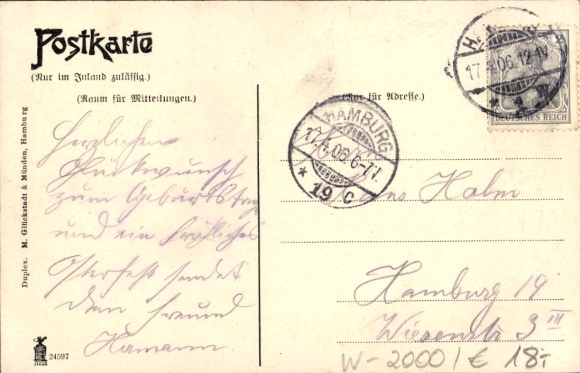 Postkarte
(Nur im Inland zulässig.)
(Raum für Mitteilungen.)
(Nur für Adresse.)
Herzlichen
Glückwunsch
zum Geburtstag
und ein fröhliches
Osterfest sendet
dein Freund
Hamann.
Holm
Hamburg 19
Wiesenstr 3 III
W-2000/€ 18,-
HAMBURG
17.4.06.6-7V.
* 19 C
17. .06.12-1V
DEUTSCHES REICH
Duplex. M. Glückstadt & Münden, Hamburg
24597